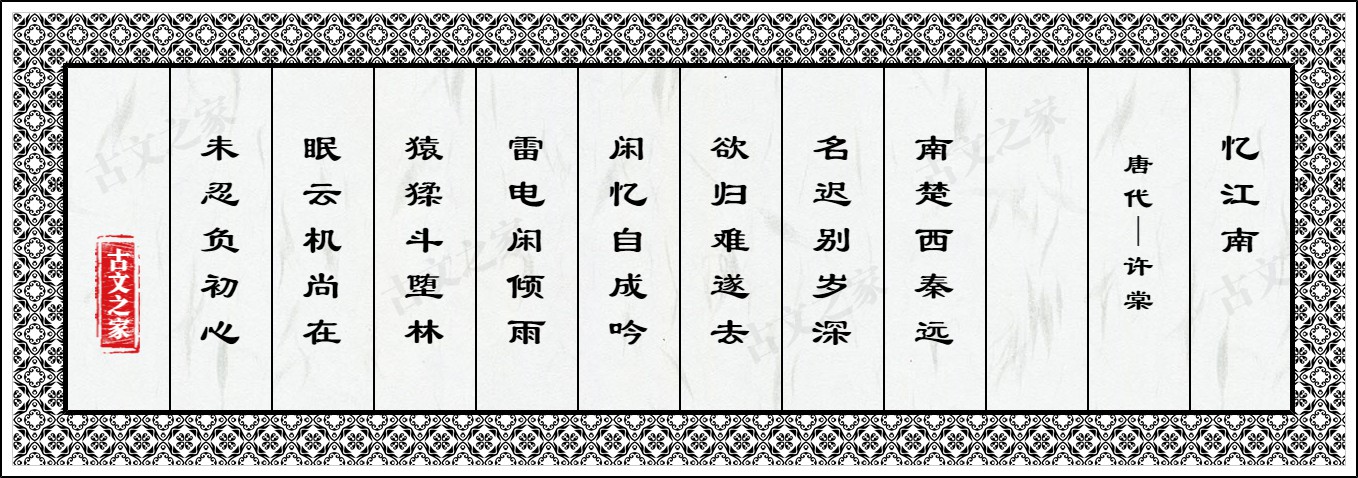 忆江南
唐代—许棠
南楚西秦远
名迟别岁深
欲归难遂去
闲忆自成吟
雷电闲倾雨
猿猱斗堕林
眠云机尚在
未忍负初心
古文之家